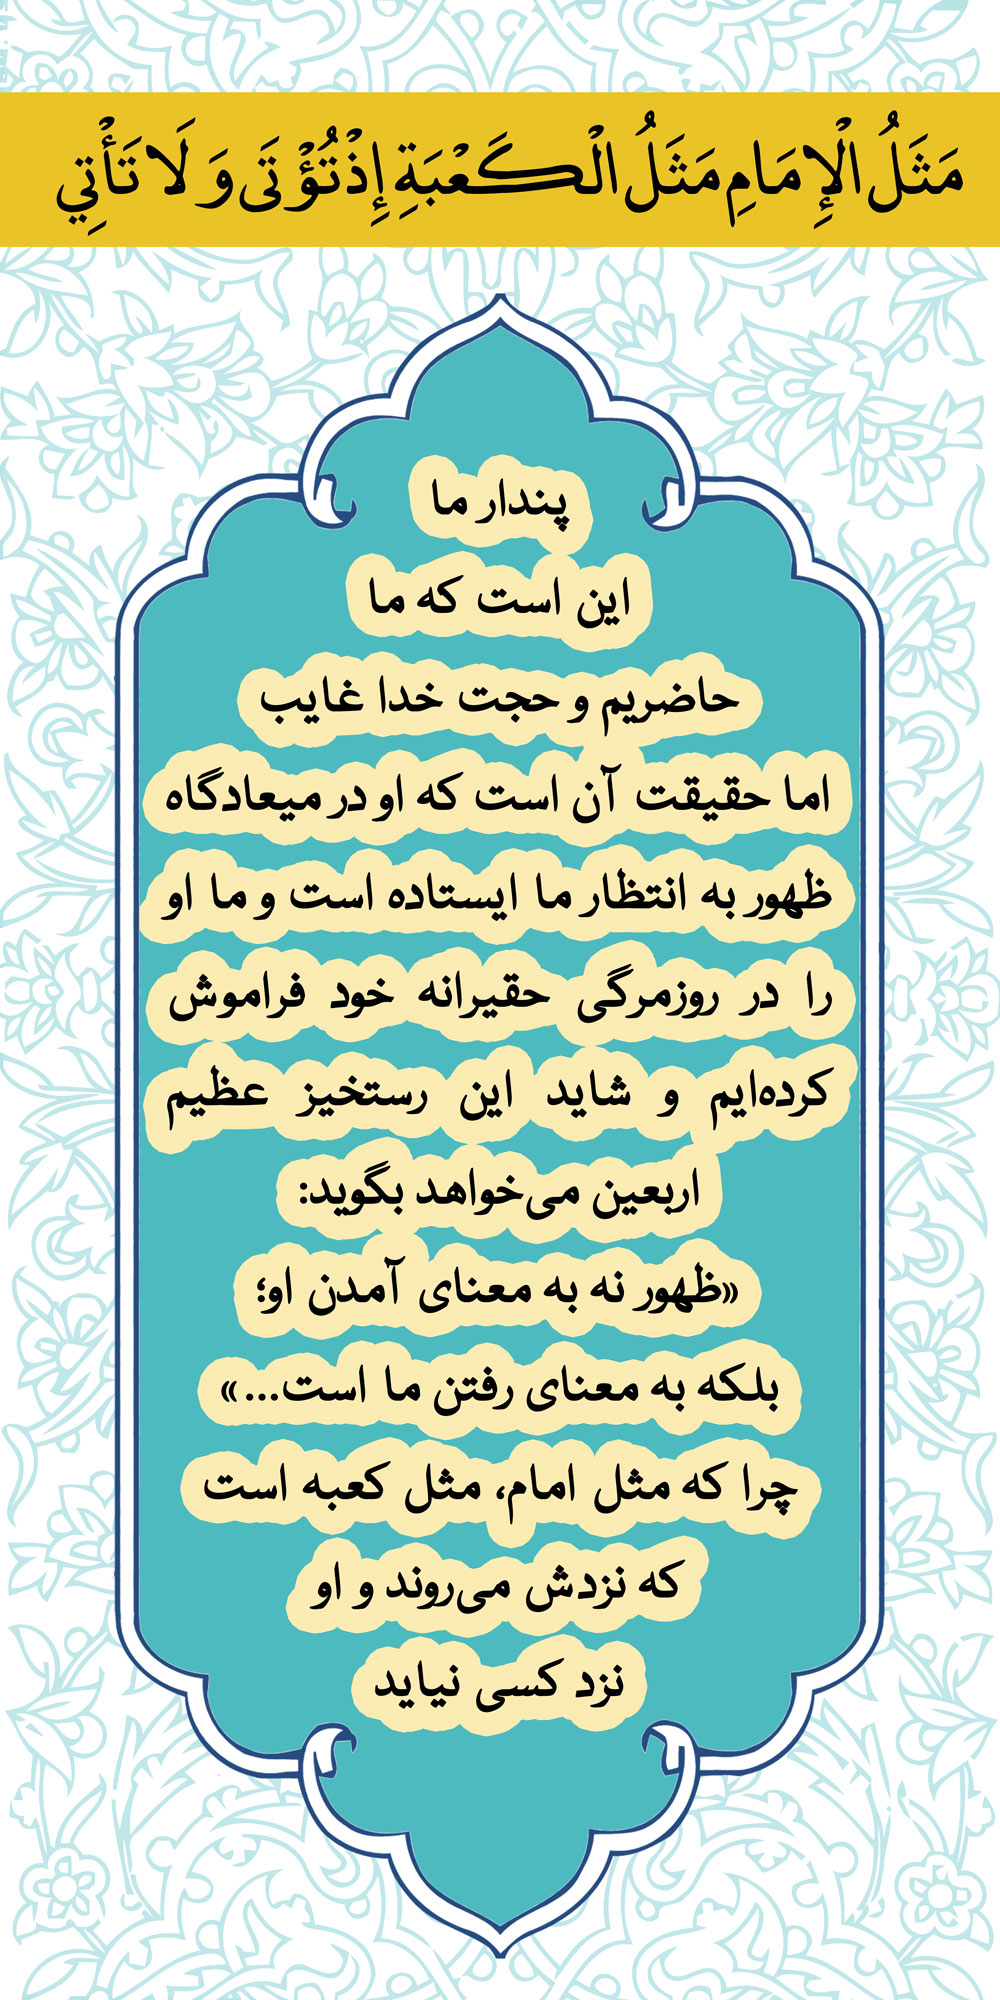 مَثَلُ الْإِمَامِ مَثَلُ الْكَعْبَةِ إِذْ تُؤْتَى وَ لَا تَأْتِي
پندار ما
این است که ما
حاضریم و حجت خدا غایب
اما حقیقت آن است که او در میعادگاه
ظهور به انتظار ما ایستاده است و ما او
را در روزمرگی حقیرانه خود فراموش
کرده‌ایم و شاید این رستخیز عظیم
اربعین می‌خواهد بگوید:
«ظهور نه به معنای آمدن او؛
بلکه به معنای رفتن ما است...»
چرا که مثل امام، مثل کعبه است
که نزدش می‌روند و او
نزد کسی نیاید